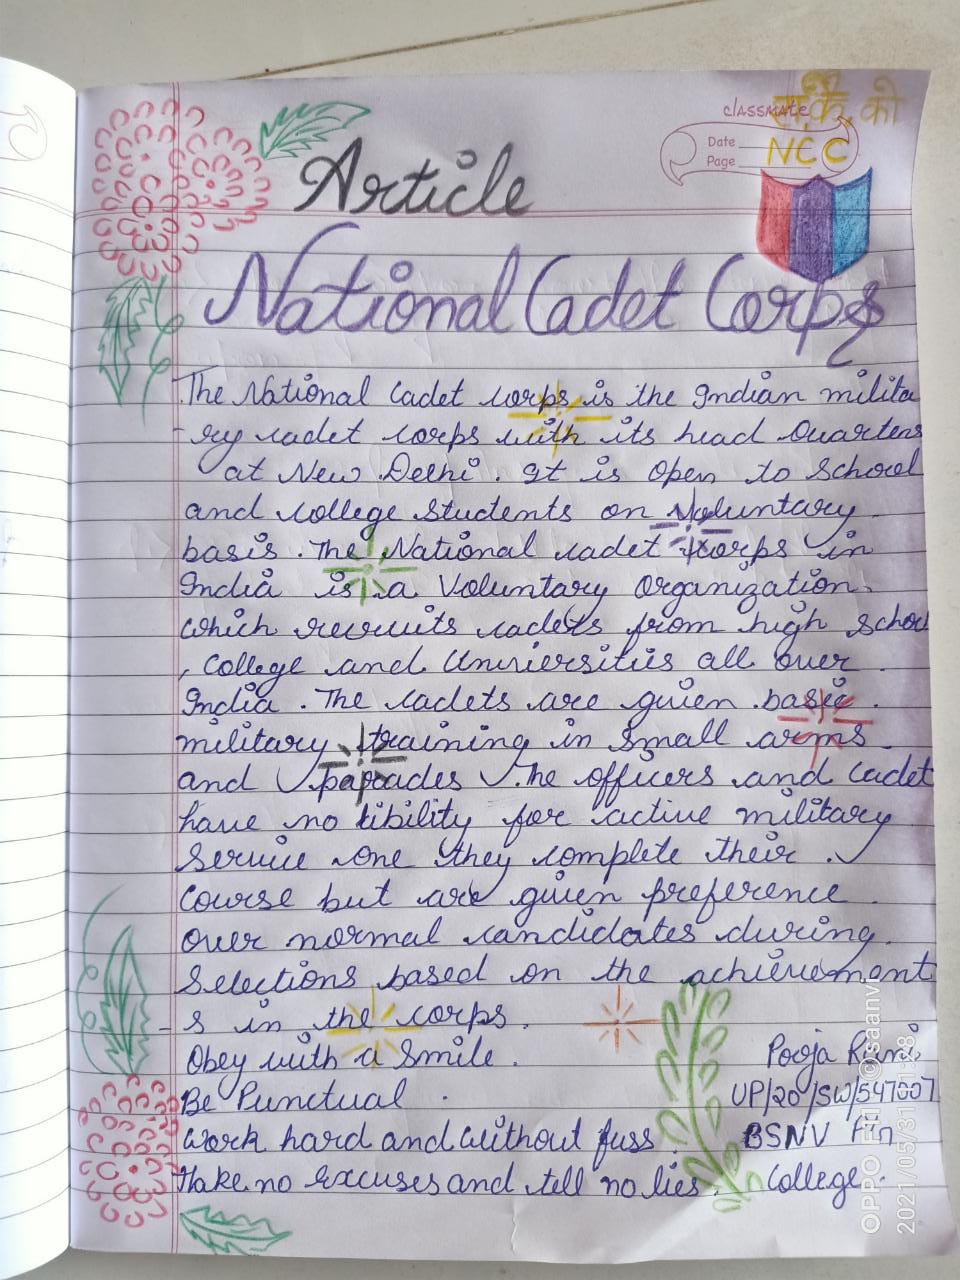 classmate
Date
Page
NCC
Article
National Cadet Corps
The National Cadet corps is the Indian milita
-ry cadet corps with its head Quarters
at New Delhi. It is open to school
and college students on voluntary
basis. The National cadet corps in
India is a Voluntary Organization
which recruits cadets from high school
, College and Universities all over
India. The cadets are given basic
military training in small arms
and parades. The officers and Cadet
have no libility for active military
service one they complete their
course but are given preference
over normal candidates during
selections based on the achievement
-s in the corps.
Obey with a Smile.
Be Punctual.
Work hard and without fuss
Make no excuses and tell no lies.
Pooja Rani
UP/20/SW/547007
BSNV
College.
OPPO F11 ©saanvi
2021/05/31